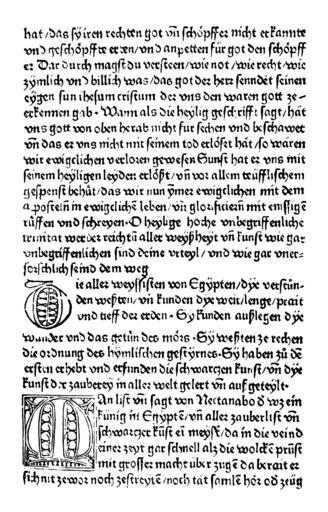 hat/das sy iren rechten got vñ schöpffer nicht erkannte
vnd geschöpffte erten/vnd anpetten für got den schöpff
er Dar durch magst du versteen/wie not/wie recht/wie
zymlich vnd billich was/das got der herr senndet seinen
eygen sun ihesum cristum der vns den waren gott ze-
erkennen gab. Wann als die heylig geschrifft sagt/hat
vns gott von oben herab nicht fur sechen vnd beschawet
vñ das er vns nicht mit seinem tod erlöset hät/so wären
wir ewigclichen verloren gewesen Sunst hat er vns mit
seinem heyligen leyden erlößt/vñ vor allem teüfflischem
gespenst behüt/das wir nun ymer ewigclichen mit dem
apostelñ in ewigclichē leben/vñ glorifiziern mit emssigē
rüffen vnd schreyen. O heylige hoche vnbegriffenliche
trinitat wer der reichtū aller weyßheyt vñ kunst wie gar
vnbegriffenlichen sind deine vrteyl/vnd wie gar vner-
forschlich seind dem weg
Die aller weyssisten von Egypten/dye verstün-
den weßten/vñ kunden dye weit/lenge/prait
vnd tieff der erden. Sy kunden außlegen dye
wunder vnd das getün des mörs. Sy weßten ze rechen
die ordnung des hymlischen gestyrnes. Sy haben zů dē
ersten erhebt vnd erfunden die schwartzen kunst/vñ dye
kunst der zauberey in aller welt gelert vñ auß geteylt.
Man list vñ sagt von Nectanabo d̄ wz ein
künig in Egyptē/vñ aller zauberlist vñ
schwartzer kūst eī meyst̄/da in die veind
einer zeyt gar schnell als die wolckē prüst
mit grosser macht über zugē da berait er
sich nit ze wor noch ze streytē/noch tät samlē hör od̄ zeüg